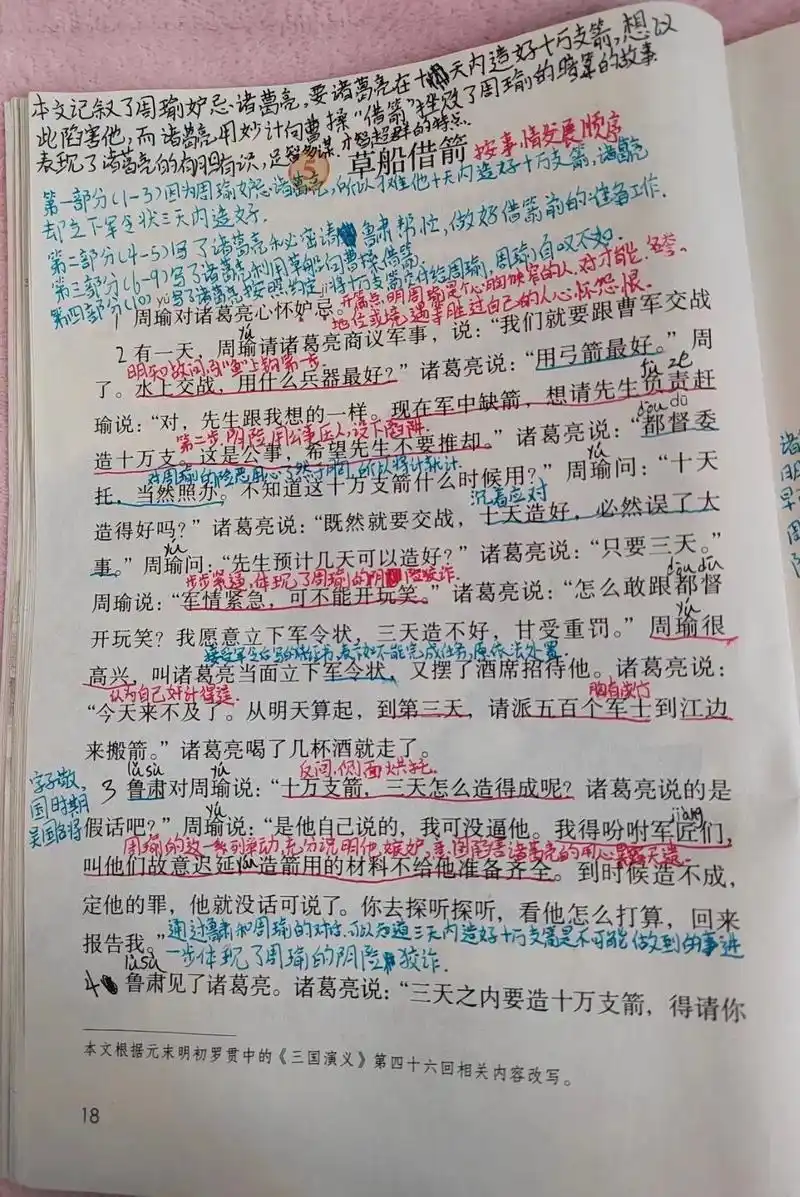 本文记叙了周瑜妒忌诸葛亮,要诸葛亮在十天内造好十万支箭,想以
此陷害他,而诸葛亮用妙计向曹操“借箭”挫败了周瑜的暗算的故事
表现了诸葛亮的有胆有识,足智多谋.才智超群的特点.
5 草船借箭 按事情发展顺序
第一部分(1-3)因为周瑜妒忌诸葛亮,所以才难他十天内造好十万支箭,诸葛亮
却立下军令状三天内造好.
第二部分(4-5)写了诸葛亮秘密请鲁肃帮忙,做好借箭前的准备工作.
第三部分(6-9)写了诸葛亮利用草船向曹操借箭
第四部分(10)写了诸葛亮按照约定将十万支箭交付给周瑜,周瑜自叹不如.
开篇点明周瑜是个心胸狭窄的人.对才能、名誉、
地位或境遇等胜过自己的人心怀怨恨.
1 周瑜对诸葛亮心怀妒忌。
2 有一天,周瑜请诸葛亮商议军事,说:“我们就要跟曹军交战
明知故问,引“鱼”上钩第一步.
了。水上交战,用什么兵器最好?”诸葛亮说:“用弓箭最好。”周
fù zé
瑜说:“对,先生跟我想的一样。现在军中缺箭,想请先生负责赶
第二步,阴险,用公事压人,设下陷阱.
dōu dū
造十万支。这是公事,希望先生不要推却。”诸葛亮说:“都督委
对周瑜的险恶用心了然于胸,所以将计就计.
托,当然照办。不知道这十万支箭什么时候用?”周瑜问:“十天
沉着应对
造得好吗?”诸葛亮说:“既然就要交战,十天造好,必然误了大
事。”周瑜问:“先生预计几天可以造好?”诸葛亮说:“只要三天。”
步步紧逼,体现了周瑜的阴险狡诈.
dōu dū
周瑜说:“军情紧急,可不能开玩笑。”诸葛亮说:“怎么敢跟都督
开玩笑?我愿意立下军令状,三天造不好,甘受重罚。”周瑜很
接受军令后写的保证书,表示如不能完成任务,愿依法处置.
高兴,叫诸葛亮当面立下军令状,又摆了酒席招待他。诸葛亮说:
认为自己奸计得逞.
胸有成竹
“今天来不及了。从明天算起,到第三天,请派五百个军士到江边
来搬箭。”诸葛亮喝了几杯酒就走了。
lǔ sù
反问,侧面烘托.
字子敬,
国时期
吴国名将
3 鲁肃对周瑜说:“十万支箭,三天怎么造得成呢?诸葛亮说的是
jiàng
假话吧?”周瑜说:“是他自己说的,我可没逼他。我得吩咐军匠们,
周瑜的这一系列举动,充分说明他嫉妒,意图陷害诸葛亮的用心
叫他们故意迟延,造箭用的材料不给他准备齐全。到时候造不成,
定他的罪,他就没话可说了。你去探听探听,看他怎么打算,回来
报告我。”
通过鲁肃和周瑜的对话,可以知道三天内造好十万支箭是不可能做到的事,进
一步体现了周瑜的阴险狡诈.
lǔ sù
4 鲁肃见了诸葛亮。诸葛亮说:“三天之内要造十万支箭,得请你
本文根据元末明初罗贯中的《三国演义》第四十六回相关内容改写。
18